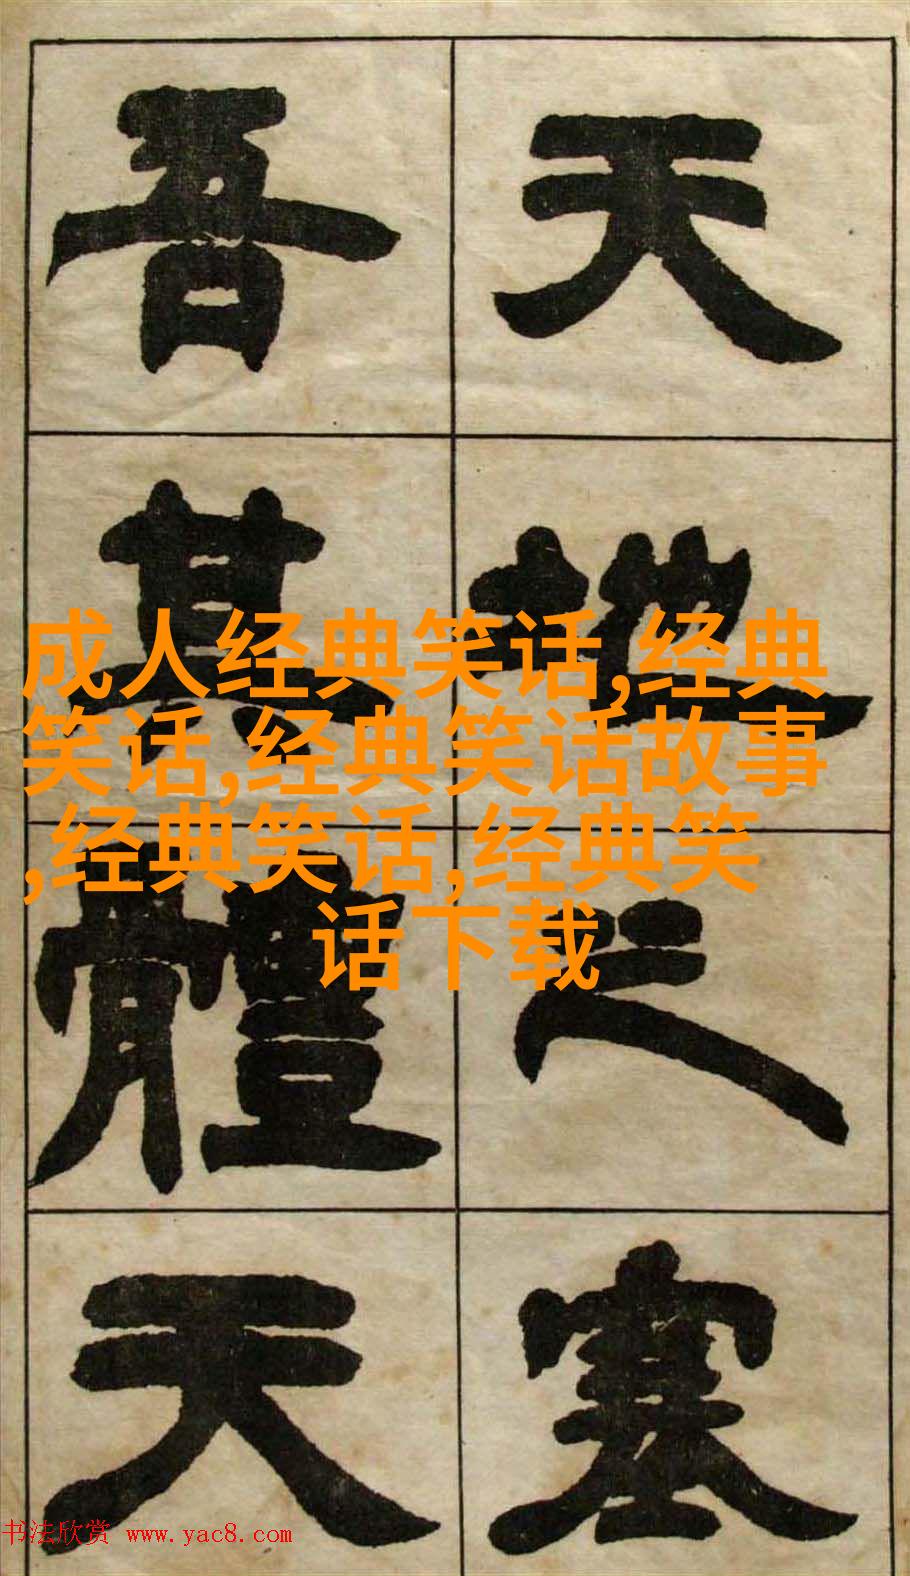 天地之塞
吾其體天
成人经典笑话,经典
笑话,经典笑话故事
,经典笑话,经典笑
话下载
书法欣赏 www.yac8.com